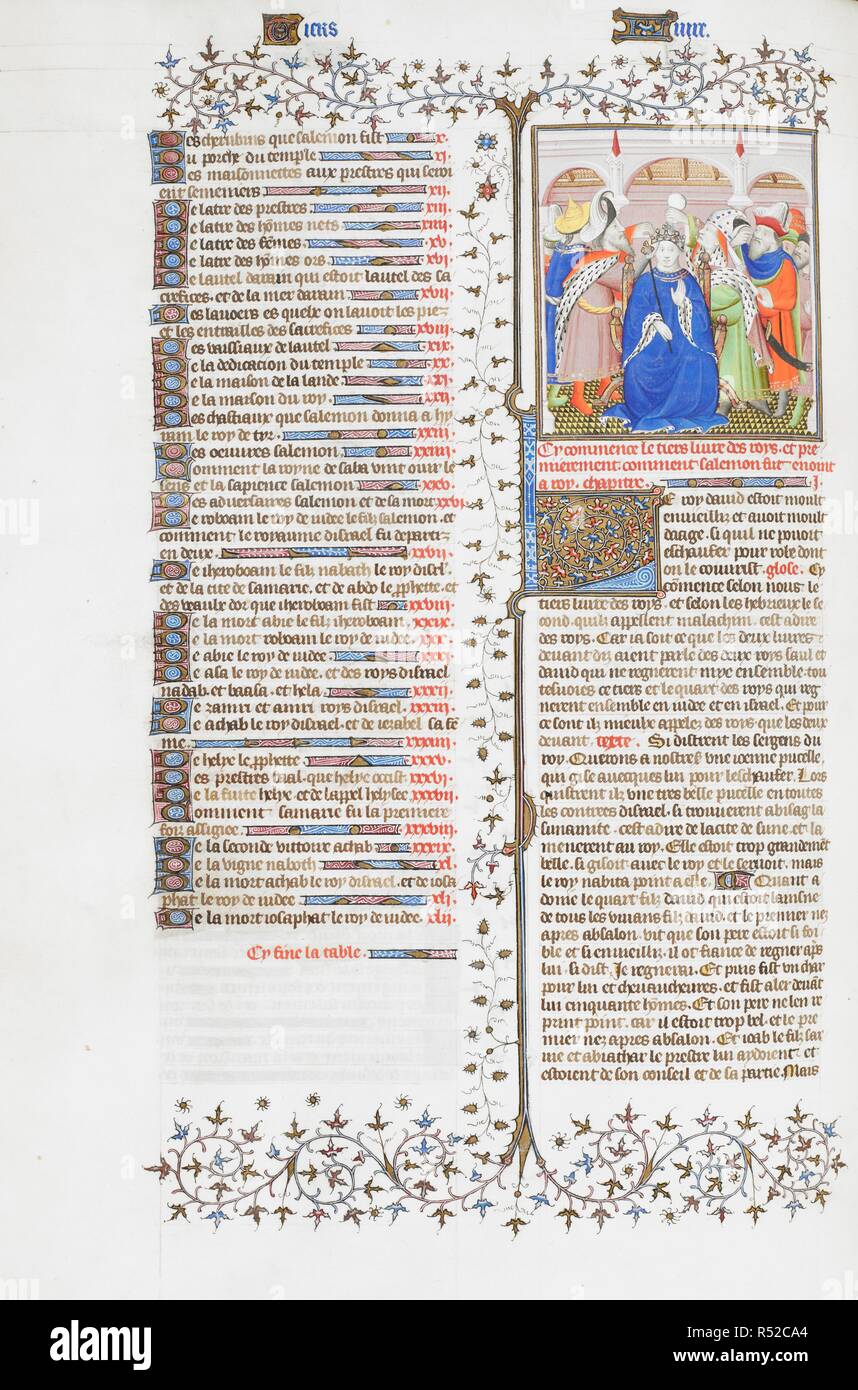 Tiers
Liure.
Des cherubins que salemon fist x.
Du porche du temple xi.
Des maisonnettes aux prestres qui seroi
ent semeniers xii.
De latre des prestres xiii.
De latre des hõmes nets xiiii.
De latre des fẽmes xv.
De latre des hõmes ors xvi.
De lautel darain qui estoit lautel des sa
crefices. et de la mer darain xvii.
Des lauoers es quelx on lauoit les piez
et les entrailles des sacrefices xviii.
Des vaissiaux de lautel xix.
De la dedicacion du temple xx.
De la maison de la lande xxi.
De la maison du roy xxii.
Des chastiaux que salemon donna a hy
ram le roy de tyr xxiii.
Des oeuures salemon xxiiii.
Comment la royne de saba vint ouir le
sens et la sapience salemon xxv.
Des aduersaires salemon et de sa mort xxvi.
De roboam le roy de iudee le filz salemon. et
comment le royaume disrael fu departi
en deux xxvii.
De iheroboam le filz nabath le roy disrl'. et
et de la cite de samarie. et de abdo le pphette. et
des veaulx dor que iheroboam fist xxviii.
De la mort abie le filz iheroboam xxix.
De la mort roboam le roy de iudee xxx.
De abie le roy de iudee xxxi.
De asa le roy de iudee. et des roys disrael
nadab. et baasa. et hela xxxii.
De zamri et amri roys disrael xxxiii.
De achab le roy disrael. et de iezabel sa fẽ
me xxxiiii.
De helye le pphette xxxv.
Des prestres baal. que helye occist xxxvi.
De la fuite helye. et de lappel helysee xxxvii.
Comment samarie fu la premiere
foiz assigiee xxxviii.
De la seconde vittoire achab xxxix.
De la vigne naboth xl.
De la mort achab le roy disrael. et de iosa
phat le roy de iudee xli.
De la mort iosaphat le roy de iudee xlii.
Cy fine la table.
Cy commence le tiers liure des roys. et pre
mierement comment salemon fut enoint
a roy. chapitre. i.
Le roy dauid estoit moult
enuieilli et auoit moult
daage. si quil ne pouoit
eschaufer pour robe dont
on le couurist. glose. Cy
cõmence selon nous le
tiers liure des roys. et selon les hebrieux le se
cond. quilz appellent malachim. cest adire
des roys. Car ia soit ce que les deux liures
deuant diz aient parle des deux roys saul et
dauid qui ne regnerent mye ensemble. tou
tesuoies ce tiers et le quart des roys qui reg
nerent ensemble en iudee et en israel. Et pour
ce sont ilz mieulx appelez des roys que les deux
deuant. texte. Si distrent les sergens du
roy. Querons a nostres. vne ioenne pucelle,
qui gise auecques lui pour leschaufer. Lors
quistrent ilz vne tres belle pucelle en toutes
les contrees disrael. si trouuerent abisag la
sunamite. cest adire de la cite de sune. et la
menerent au roy. Elle estoit trop grandemẽt
belle. si gisoit auec le roy et le seruoit. mais
le roy nabita point a elle. Quant a
donie le quart filz dauid qui estoit lainsne
de tous les viuans filz dauid. et le premier nez
apres absalon. vit que son pere estoit si foi
ble et si enuieilli. il ot fiance de regner aps
lui. si dist. Je regnerai. Et puis fist vn char
pour lui et cheuaucheures. et fist aler deuãt
lui cinquante hõmes. Et son pere ne len re
print point. car il estoit trop bel. et le pre
mier nez apres absalon. Et ioab le filz sar
uie et abiathar le prestre lui aydoient. et
estoient de son conseil et de sa partie. Mais
alamy
Image ID: R52CA4
www.alamy.com